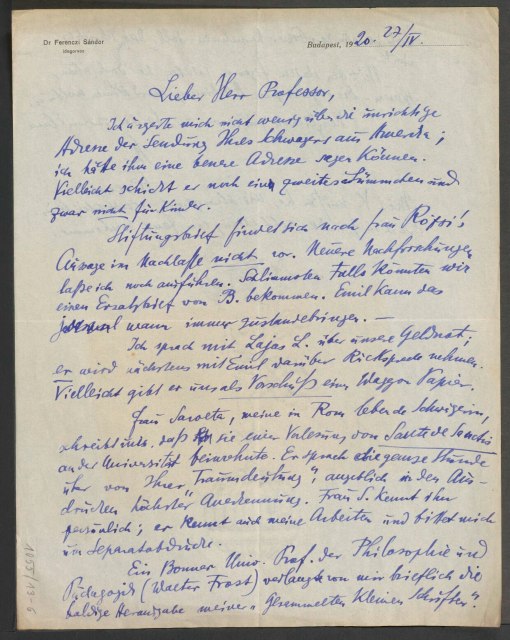 Dr Ferenczi Sándor
idegorvos
Budapest, 1920. 27/IV.
Lieber Herr Professor,
Ich ärgerte mich nicht wenig über die unrichtige
Adresse der Sendung Ihres Schwagers aus Amerika;
ich hätte ihm eine bessere Adresse sagen können.
Vielleicht schickt er noch ein zweites Sümmchen und
zwar nicht für Kinder.
Stiftungsbrief findet sich nach Frau Rófsi's
Aussage im Nachlasse nicht vor. Neuere Nachforschungen
lasse ich noch ausführen. Schlimmsten Falls könnten wir
einen Ersatzbrief von B. bekommen. Emil kann das
wann immer zustandebringen. —
Ich sprach mit Lajos L. über unsere Geldnot;
er wird nächstens mit Emil darüber Rücksprache nehmen.
Vielleicht gibt er uns als Vorschuß einen Waggon Papier.
Frau Sarolta, meine in Rom lebende Schwägerin,
schreibt mir, daß sie einer Vorlesung von Sante de Sanctis
an der Universität beiwohnte. Er sprach die ganze Stunde
über von Ihrer „Traumdeutung“, angeblich in den Aus-
drücken höchster Anerkennung. Frau S. kennt ihn
persönlich; er kennt auch meine Arbeiten und bittet mich
um Separatabdrücke.
Ein Bonner Univ. Prof. der Philosophie und
Pädagogik (Walter Frost) verlangte von mir brieflich die
baldige Herausgabe meiner „Gesammelten kleinen Schriften“.
1055/13-6